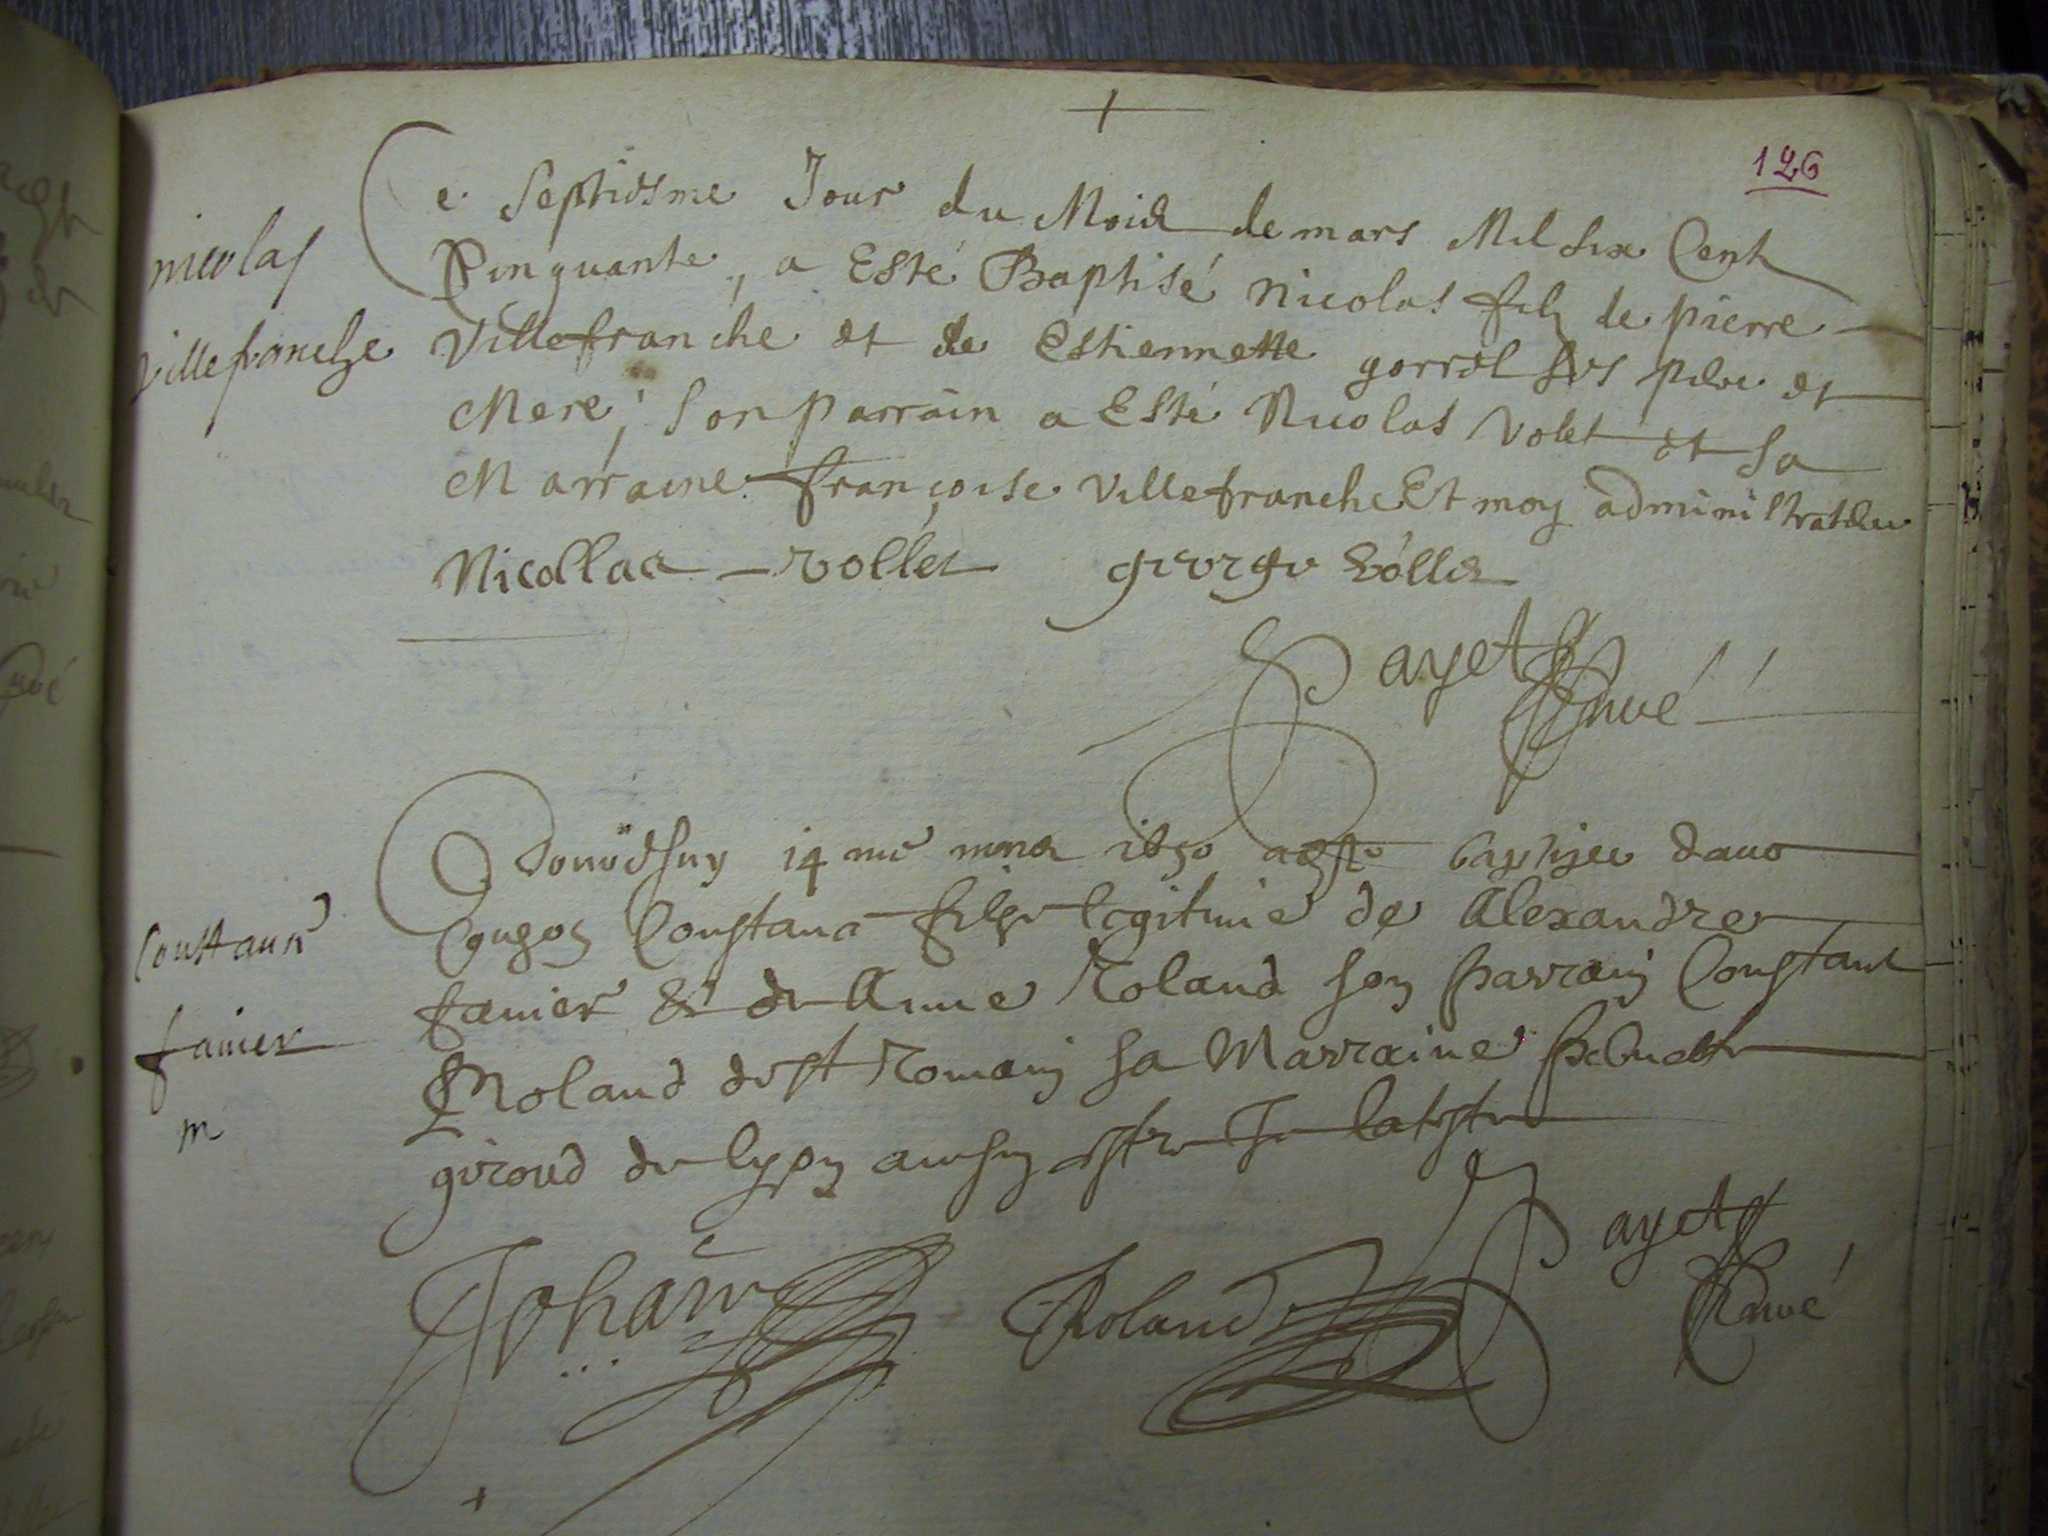 126
nicolas
villefranche
Ce septiesme Jour du Mois de mars Mil six Cent
Cinquante, a Esté Baptisé Nicolas filz de pierre
Villefranche et de Estiennette gorrel ses pere et
Mere; son parrain a Esté Nicolas Volet et sa
Marraine françoise Villefranche Et moy administrateur
Nicollas vollet george
Payet
Curé
14me mars 1650 a este baptise dans
Constans filz legitime de Alexandre
Constant
fanier
m
fanier & de Anne Roland son parrain Constant
Roland de st Romain sa Marraine
giroud de lyon ainsy
Johan Roland Payet
Curé